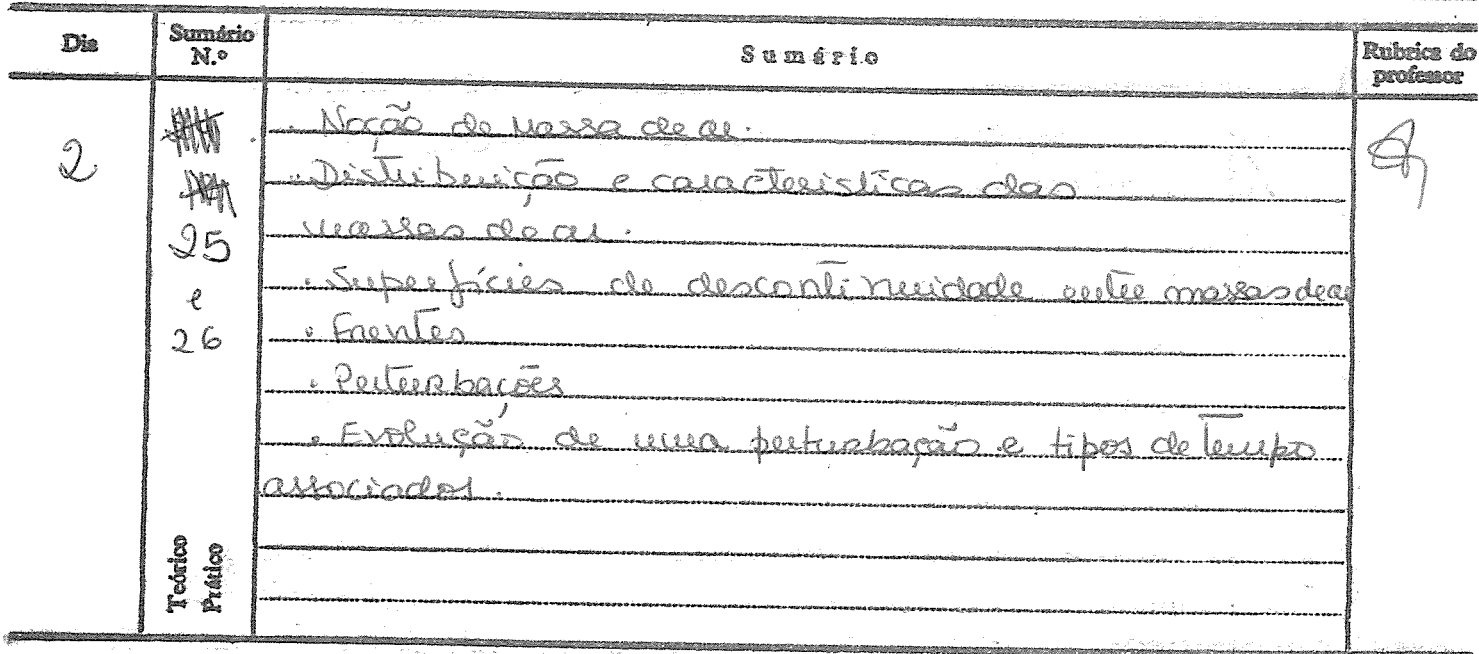 Dia
Sumário N.º
Sumário
Rubrica do professor
2
25
e
26
. Noção de Massa de ar.
. Distribuição e características das
massas de ar.
. Superfícies de descontinuidade entre massas de ar
. Frentes
. Perturbações
. Evolução de uma perturbação e tipos de tempo
associados.
Teórico
Prático